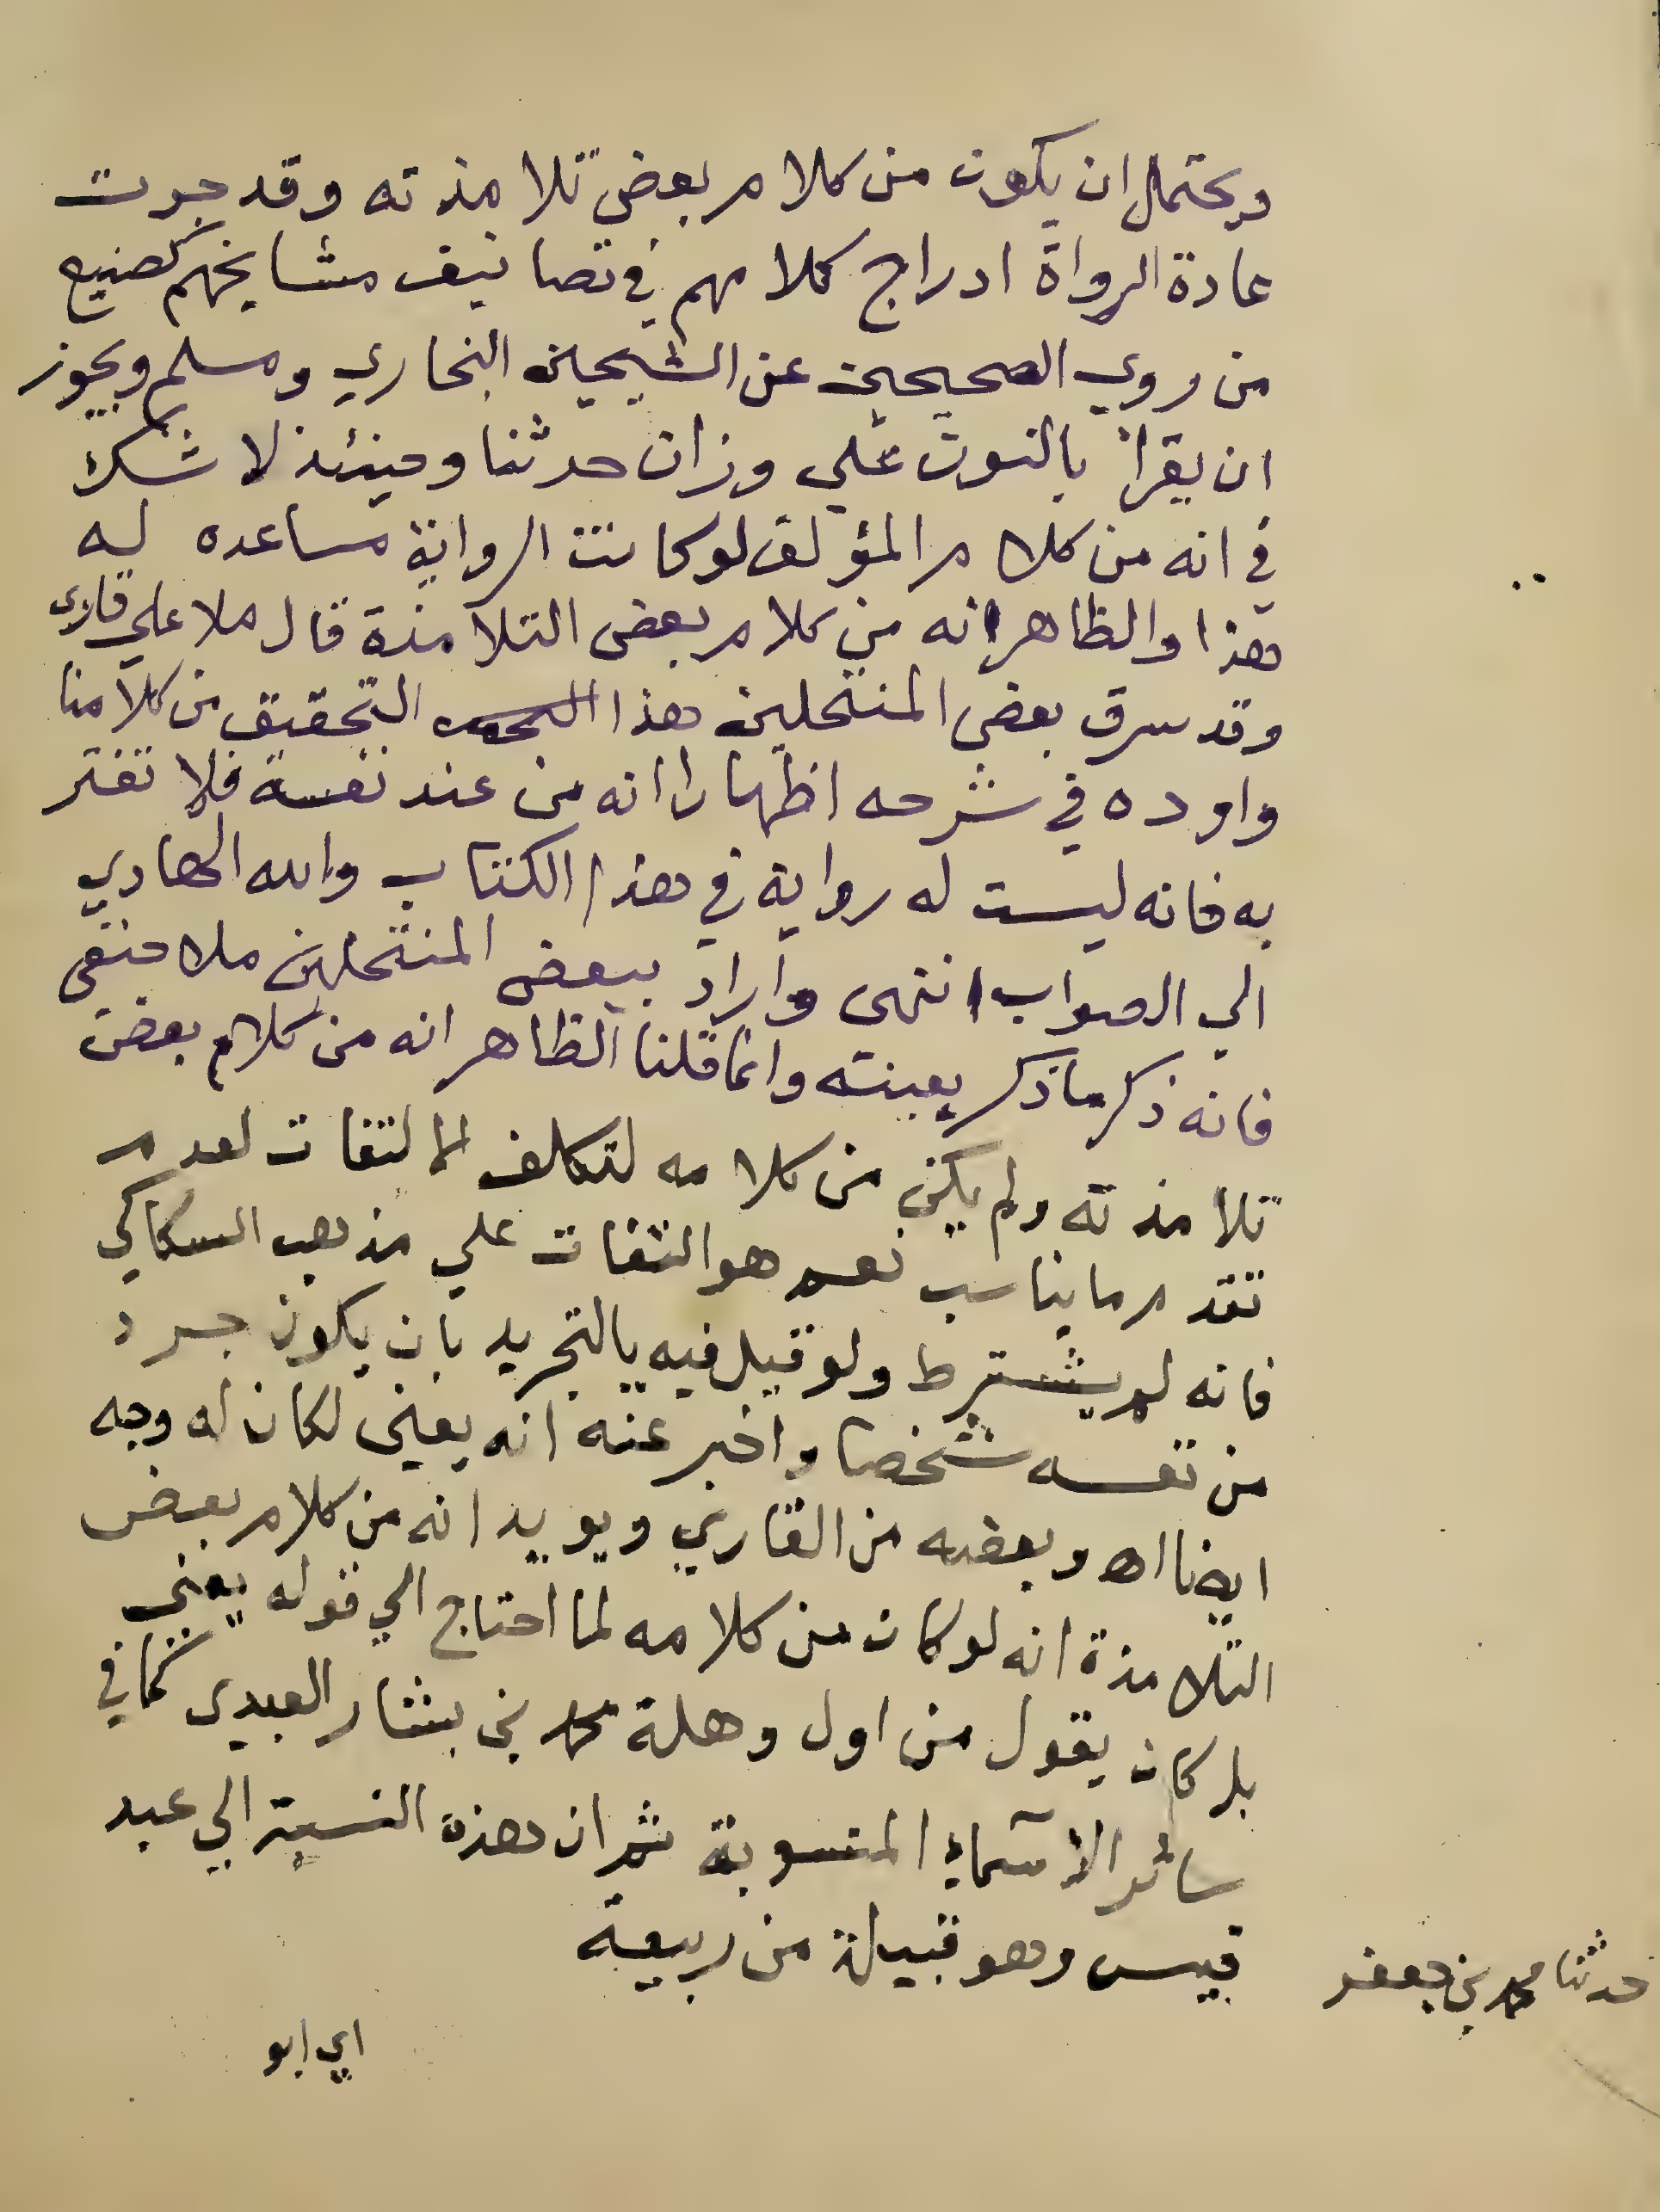 ويحتمل ان يكون من كلام بعض تلامذته وقد جرت
عادة الرواة ادراج كلامهم في تصانيف مشايخهم كصنيع
من روي الصحيحين عن الشيخين البخاري ومسلم ويجوز
ان يقرأ بالنون علي وزان حدثنا وحينئذ لا شك
في انه من كلام المؤلف لو كانت الرواية مساعده له
هذا والظاهر انه من كلام بعض التلامذة قال ملا علي قاري
وقد سرق بعض المنتحلين هذا التحقيق من كلامنا
واورده في شرحه اظهارا انه من عند نفسه فلا تغتر
به فانه ليست له رواية في هذا الكتاب والله الهادي
الي الصواب انتهى واراد ببعض المنتحلين ملا حنفى
فانه ذكر ما ذكر بعينه وانما قلنا الظاهر انه من كلام بعض
تلامذته ولم يكن من كلامه لتكلف الالتفات لعدم
تقدم ما يناسب نعم هو التفات علي مذهب السكاكي
فانه لم يشترط ولو قيل فيه بالتجريد بان يكون جرد
من نفسه شخصا واخبر عنه انه يعنى لكان له وجه
ايضا اه وبعضه من القاري ويويد انه من كلام بعض
التلامذة انه لو كان من كلامه لما احتاج الي قوله يعني
بل كان يقول من اول وهلة محمد بن بشار العبدى كما في
سائر الاسماء المنسوبة ثم ان هذه النسبة الي عبد
قيس وهو قبيلة من ربيعة
حدثنا محمد بن جعفر
اي ابو